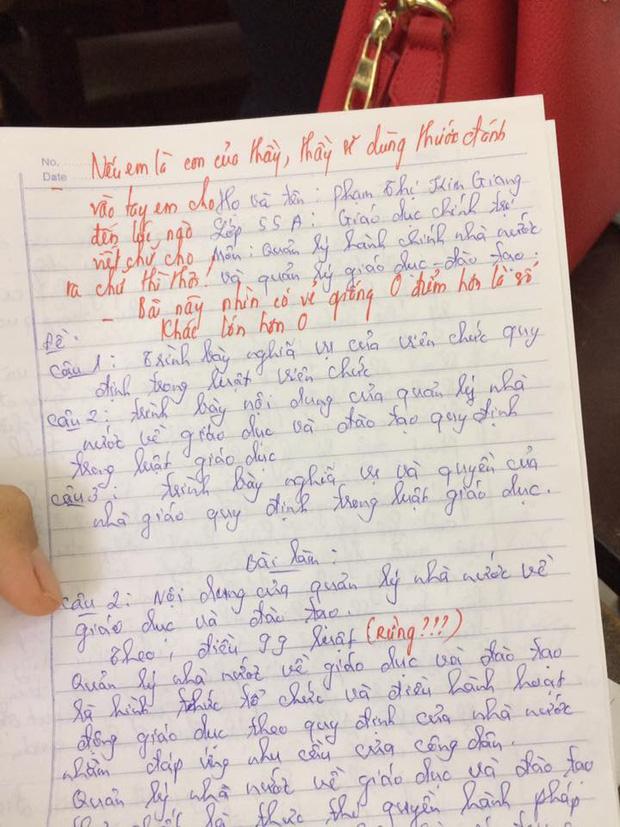 No.
Date
- Nếu em là con của thầy, thầy sẽ dùng thước đánh
vào tay em cho
đến lúc nào
viết chữ cho
ra chữ thì thôi!
- Bài này nhìn có vẻ giống 0 điểm hơn là số
khác lớn hơn 0
Họ và tên: Phạm Thị Kim Giang
Lớp SSA: Giáo dục chính trị
Môn: Quản lý hành chính nhà nước
và quản lý giáo dục - đào tạo.
Đề:
Câu 1: Trình bày nghĩa vụ của viên chức quy
định trong luật viên chức
Câu 2: trình bày nội dung của quản lý nhà
nước về giáo dục và đào tạo quy định
trong luật giáo dục
Câu 3: trình bày nghĩa vụ và quyền của
nhà giáo quy định trong luật giáo dục.
Bài làm:
Câu 2: Nội dung của quản lý nhà nước về
giáo dục và đào tạo.
Theo, điều 99 luật (Rừng???)
Quản lý nhà nước về giáo dục và đào tạo
là hình thức tổ chức và điều hành hoạt
động giáo dục theo quy định của nhà nước
nhằm đáp ứng nhu cầu của công dân.
Quản lý nhà nước về giáo dục và đào tạo
là thực thi quyền hành pháp